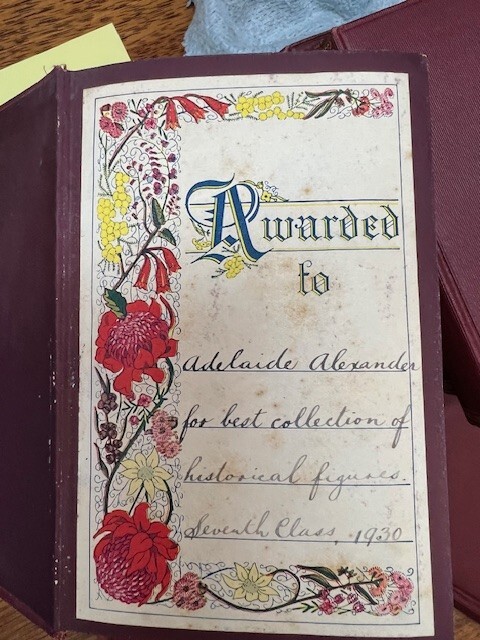 Awarded
to
Adelaide Alexander
for best collection of
historical figures.
Seventh Class, 1930